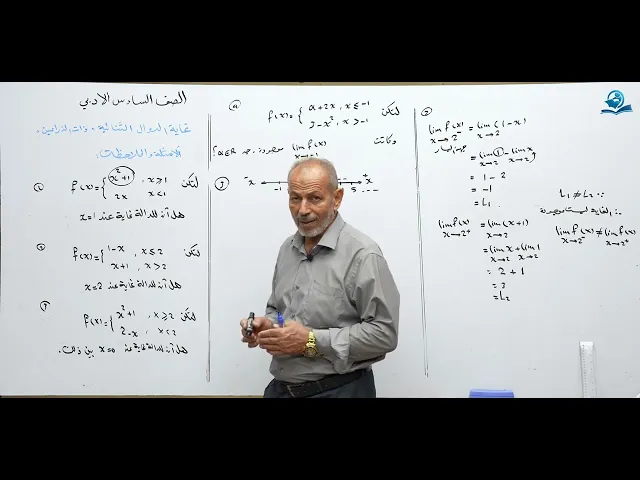 الصف السادس الادبي
غاية الدوال الثنائية ، ذات الفرعين .
الأمثلة والملاحظات :
① لتكن f(x) = { x²+1 , x ≥ 1
2x x < 1
هل أن للدالة غاية عند x=1
② لتكن f(x) = { 1-x , x ≤ 2
x+1 , x > 2
هل أن للدالة غاية عند x=2
③ لتكن f(x) = { x²+1 , x ≥ 2
2-x , x < 2
هل أن للدالة غاية عند x=0 بين ذلك .
لتكن f(x) = { a+2x , x ≤ -1
3-x² , x > -1
وكانت lim f(x) موجودة ، جد a∈R ؟
x→-1
-x +x
-1 5
②
lim f(x) = lim (1-x)
x→2⁻ x→2
= lim 1 - lim x
x→2 x→2
= 1 - 2
= -1
= L₁
lim f(x) = lim (x+1)
x→2⁺ x→2
= lim x + lim 1
x→2 x→2
= 2 + 1
= 3
= L₂
∵ L₁ ≠ L₂
∴ الغاية ليست موجودة
lim f(x) ≠ lim f(x)
x→2⁻ x→2⁺